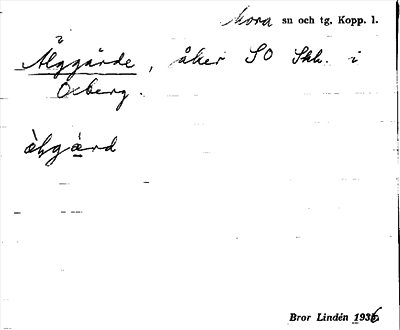 Mora sn och tg. Kopp. l.
Älggärde, åker SO Skh. i
Oxberg.
Bror Lindén 1936